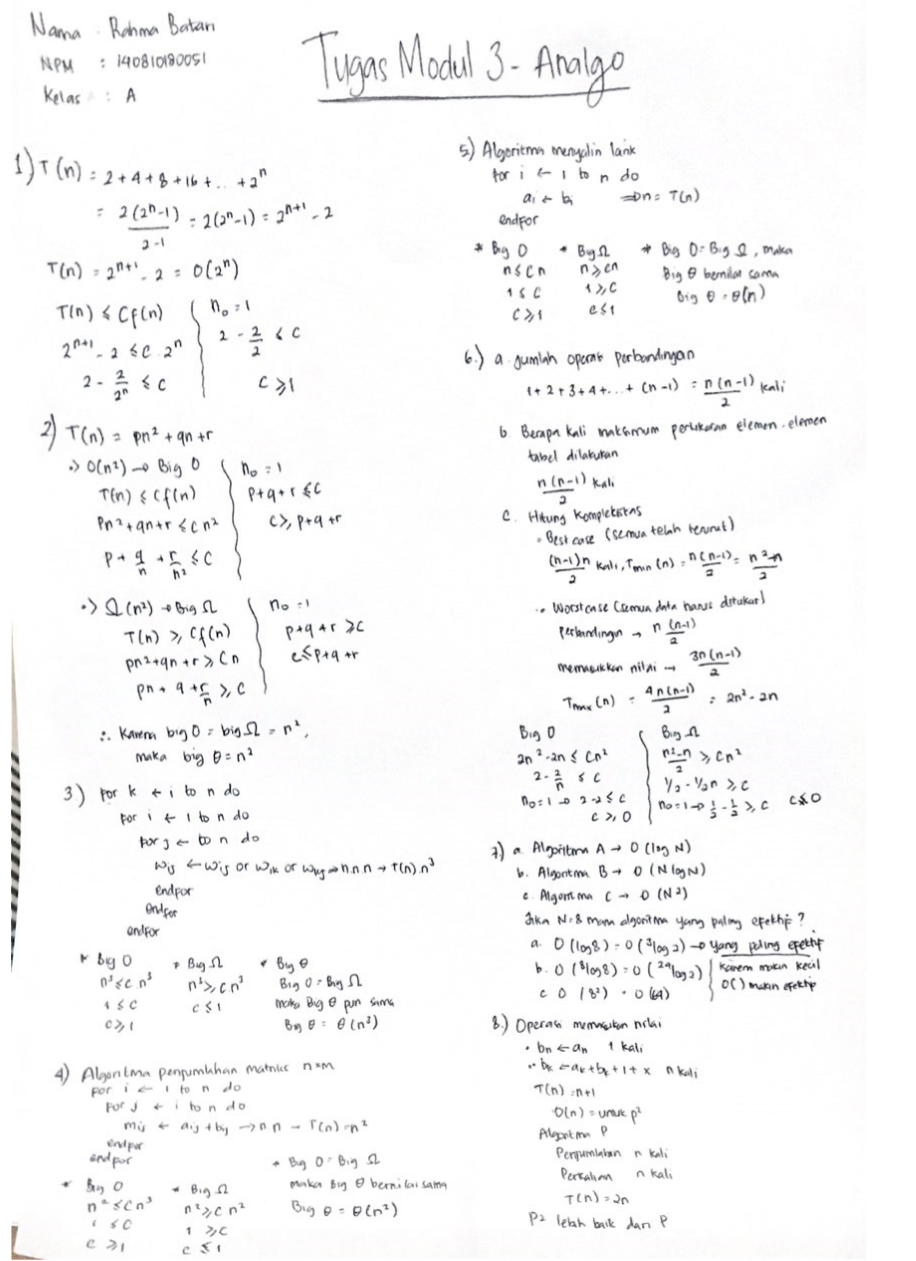 Nama : Rahma Batari
NPM : 140810180051
Kelas : A
Tugas Modul 3 - Analgo
1) T(n) = 2+4+8+16+...+2^n
= 2(2^n-1)/2-1 = 2(2^n-1) = 2^{n+1} - 2
T(n) = 2^{n+1} - 2 = O(2^n)
T(n) ≤ Cf(n)
2^{n+1} - 2 ≤ C.2^n
2 - 2/2^n ≤ C
n₀ = 1
2 - 2/2 ≤ C
C ≥ 1
2) T(n) = pn² + qn + r
•> O(n²) → Big O
T(n) ≤ Cf(n)
Pn² + qn + r ≤ Cn²
P + q/n + r/n² ≤ C
n₀ = 1
P+q+r ≤ C
C ≥ p+q+r
•> Ω(n²) → Big Ω
T(n) ≥ Cf(n)
pn²+qn+r ≥ Cn
pn + q + r/n ≥ C
n₀ = 1
p+q+r ≥ C
c ≤ p+q+r
∴ Karena big O = big Ω = n²,
maka big θ = n²
3) for k ← i to n do
for i ← 1 to n do
for j ← to n do
wij ← wij or wik or wkj → n.n.n → T(n).n³
endfor
endfor
endfor
* Big O
n³ ≤ c n³
1 ≤ C
C ≥ 1
* Big Ω
n³ ≥ cn³
c ≤ 1
* Big θ
Big O = Big Ω
maka Big θ pun sama
Big θ = θ(n³)
4) Algoritma penjumlahan matriks n×m
for i ← 1 to n do
for j ← i to n do
mij ← aij + bij → n n → T(n) = n²
endfor
endfor
* Big O
n² ≤ Cn³
1 ≤ C
c ≥ 1
* Big Ω
n² ≥ cn²
1 ≥ C
c ≤ 1
* Big O = Big Ω
maka Big θ bernilai sama
Big θ = θ(n²)
5) Algoritma menyalin larik
for i ← 1 to n do
ai ← bi ⇒ n = T(n)
endfor
* Big O
n ≤ Cn
1 ≤ C
C ≥ 1
* Big Ω
n ≥ cn
1 ≥ C
c ≤ 1
* Big O = Big Ω, maka
Big θ bernilai sama
Big θ = θ(n)
6.) a. Jumlah operasi perbandingan
1+2+3+4+...+(n-1) = n(n-1)/2 kali
b. Berapa kali maksimum pertukaran elemen-elemen
tabel dilakukan
n(n-1)/2 kali
C. Hitung kompleksitas
• Best case (semua telah terurut)
(n-1)n/2 kali, Tmin(n) = n(n-1)/2 = n²-n/2
•• Worst case (semua data harus ditukar)
Perbandingan → n(n-1)/2
memasukkan nilai → 3n(n-1)/2
Tmax(n) = 4n(n-1)/2 = 2n² - 2n
Big O
2n²-2n ≤ Cn²
2 - 2/n ≤ C
n₀=1 → 2-2 ≤ C
C ≥ 0
Big Ω
n²-n/2 ≥ Cn²
1/2 - 1/2n ≥ C
n₀=1 → 1/2 - 1/2 ≥ C C ≤ 0
7) a. Algoritma A → O(log N)
b. Algoritma B → O(N log N)
c. Algoritma C → O(N²)
Jika N=8 mana algoritma yang paling efektif?
a. O(log 8) = O(3 log 2) → yang paling efektif
b. O(8 log 8) = O(24 log 2)
c. O(8²) = O(64)
Karena makin kecil
O() makin efektif
8.) Operasi memasukan nilai
• bn ← an 1 kali
•• bk ← ak + bk+1 + x n kali
T(n) = n+1
O(n) = untuk p²
Algoritma P
Penjumlahan n kali
Perkalian n kali
T(n) = 2n
P2 lebih baik dari P